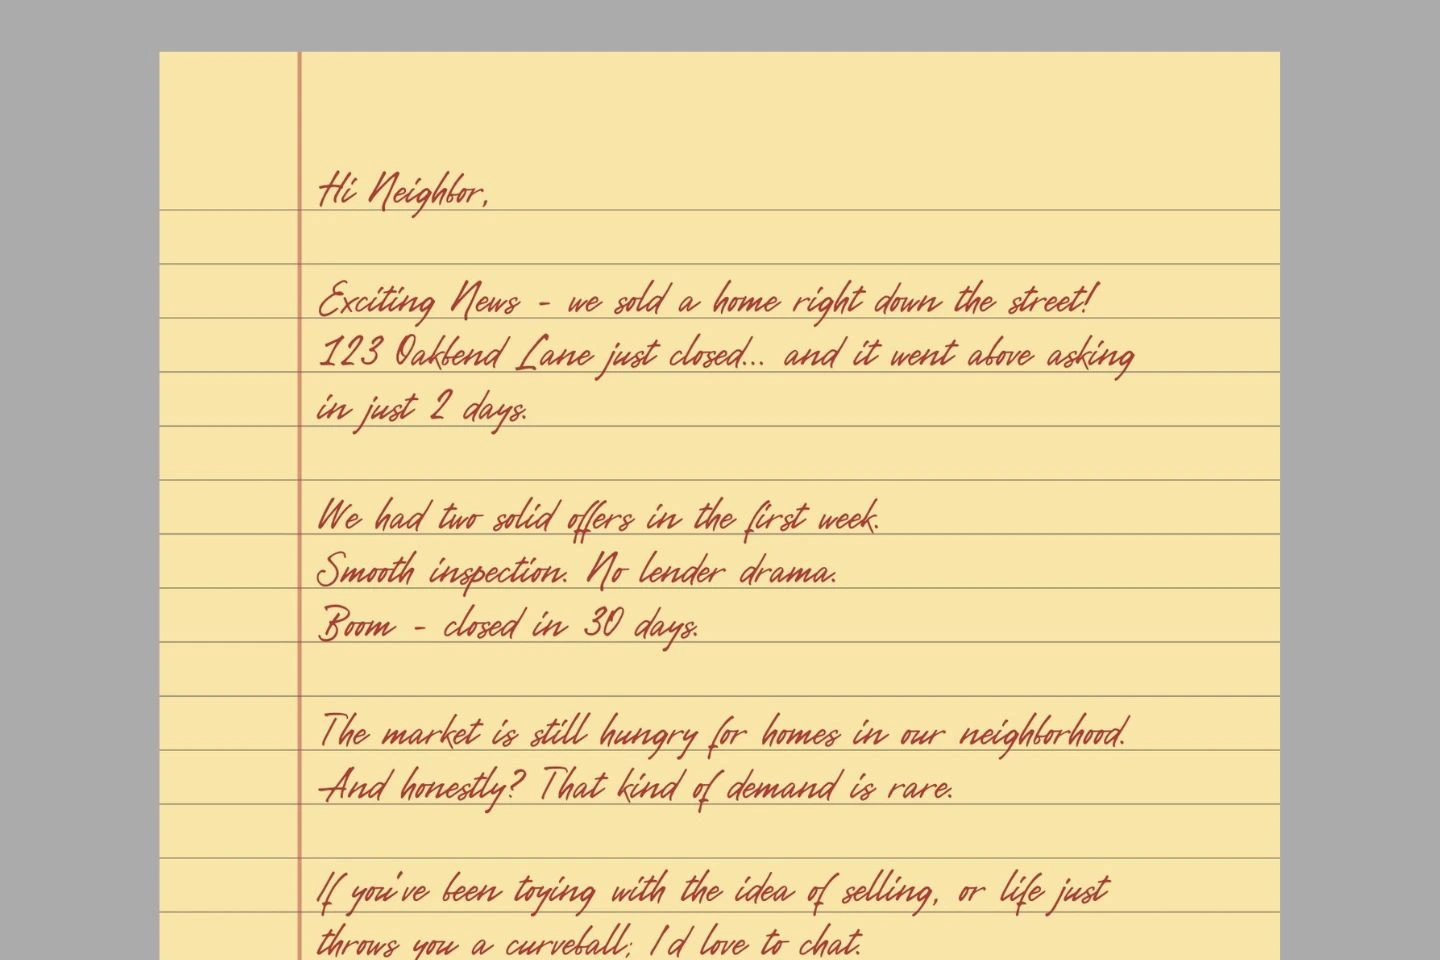 Hi Neighbor,
Exciting News - we sold a home right down the street!
123 Oakbend Lane just closed... and it went above asking
in just 2 days.
We had two solid offers in the first week.
Smooth inspection. No lender drama.
Boom - closed in 30 days.
The market is still hungry for homes in our neighborhood.
And honestly? That kind of demand is rare.
If you've been toying with the idea of selling, or life just
throws you a curveball; I'd love to chat.